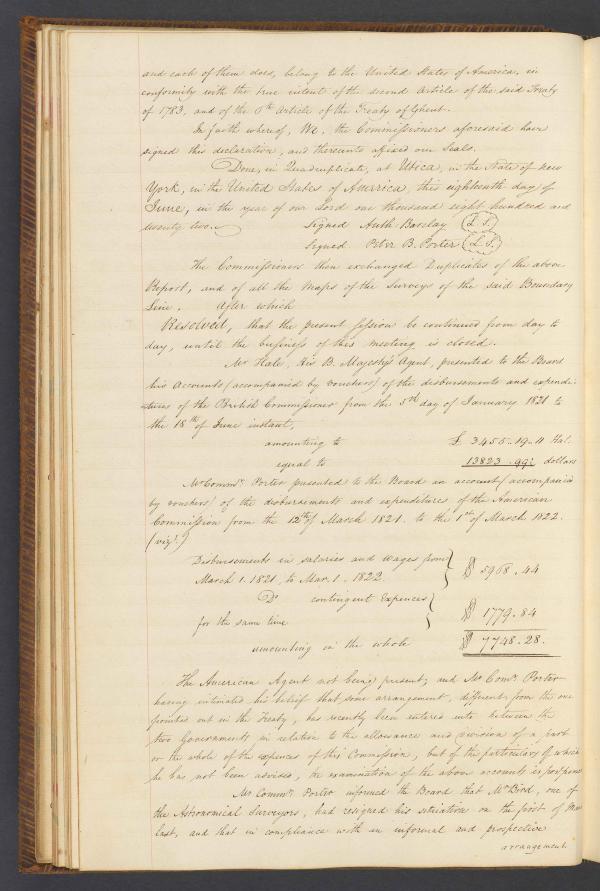 and each of them does, belong to the United States of America, in
conformity with the true intent of the second article of the said Treaty
of 1783, and of the 6th article of the Treaty of Ghent.
In faith whereof, We, the Commissioners aforesaid have
signed this declaration, and thereunto affixed our Seals.
Done, in Quadruplicate, at Utica, in the State of New
York, in the United States of America, this eighteenth day of
June, in the year of our Lord one thousand eight hundred and
twenty two.
Signed Anth. Barclay (L.S.)
Signed Peter B. Porter (L.S.)
The Commissioners then exchanged Duplicates of the above
Report, and of all the Maps of the Surveys of the said Boundary
Line. After which
Resolved, that the present session be continued from day to
day, until the business of this meeting is closed.
Mr Hale, His B. Majesty's Agent, presented to the Board
his Accounts (accompanied by vouchers) of the disbursements and expendi-
tures of the British Commissioner from the 5th day of January 1821 to
the 18th of June instant,
amounting to £ 3455..19..11 Hal.
equal to 13823..99½ dollars
Mr Commr. Porter presented to the Board an account (accompanied
by vouchers) of the disbursements and expenditures of the American
Commission from the 12th of March 1821. to the 1st of March 1822.
(vizt.)
Disbursements in salaries and wages from
March 1. 1821, to Mar. 1. 1822. } $ 5968.44
Do contingent Expences
for the same time } $ 1779.84
amounting in the whole $ 7748.28.
The American Agent not being present, and Mr Comr. Porter
having intimated his belief that some arrangement, different from the one
pointed out in the Treaty, has recently been entered into between the
two Governments in relation to the allowance and division of a part
or the whole of the expences of this Commission, but of the particulars of which
he has not been advised, the examination of the above accounts is postponed
Mr Commr. Porter informed the Board that Mr Bird, one of
the Astronomical Surveyors, had resigned his situation on the first of
last, and that in compliance with an informal and prospective
arrangement